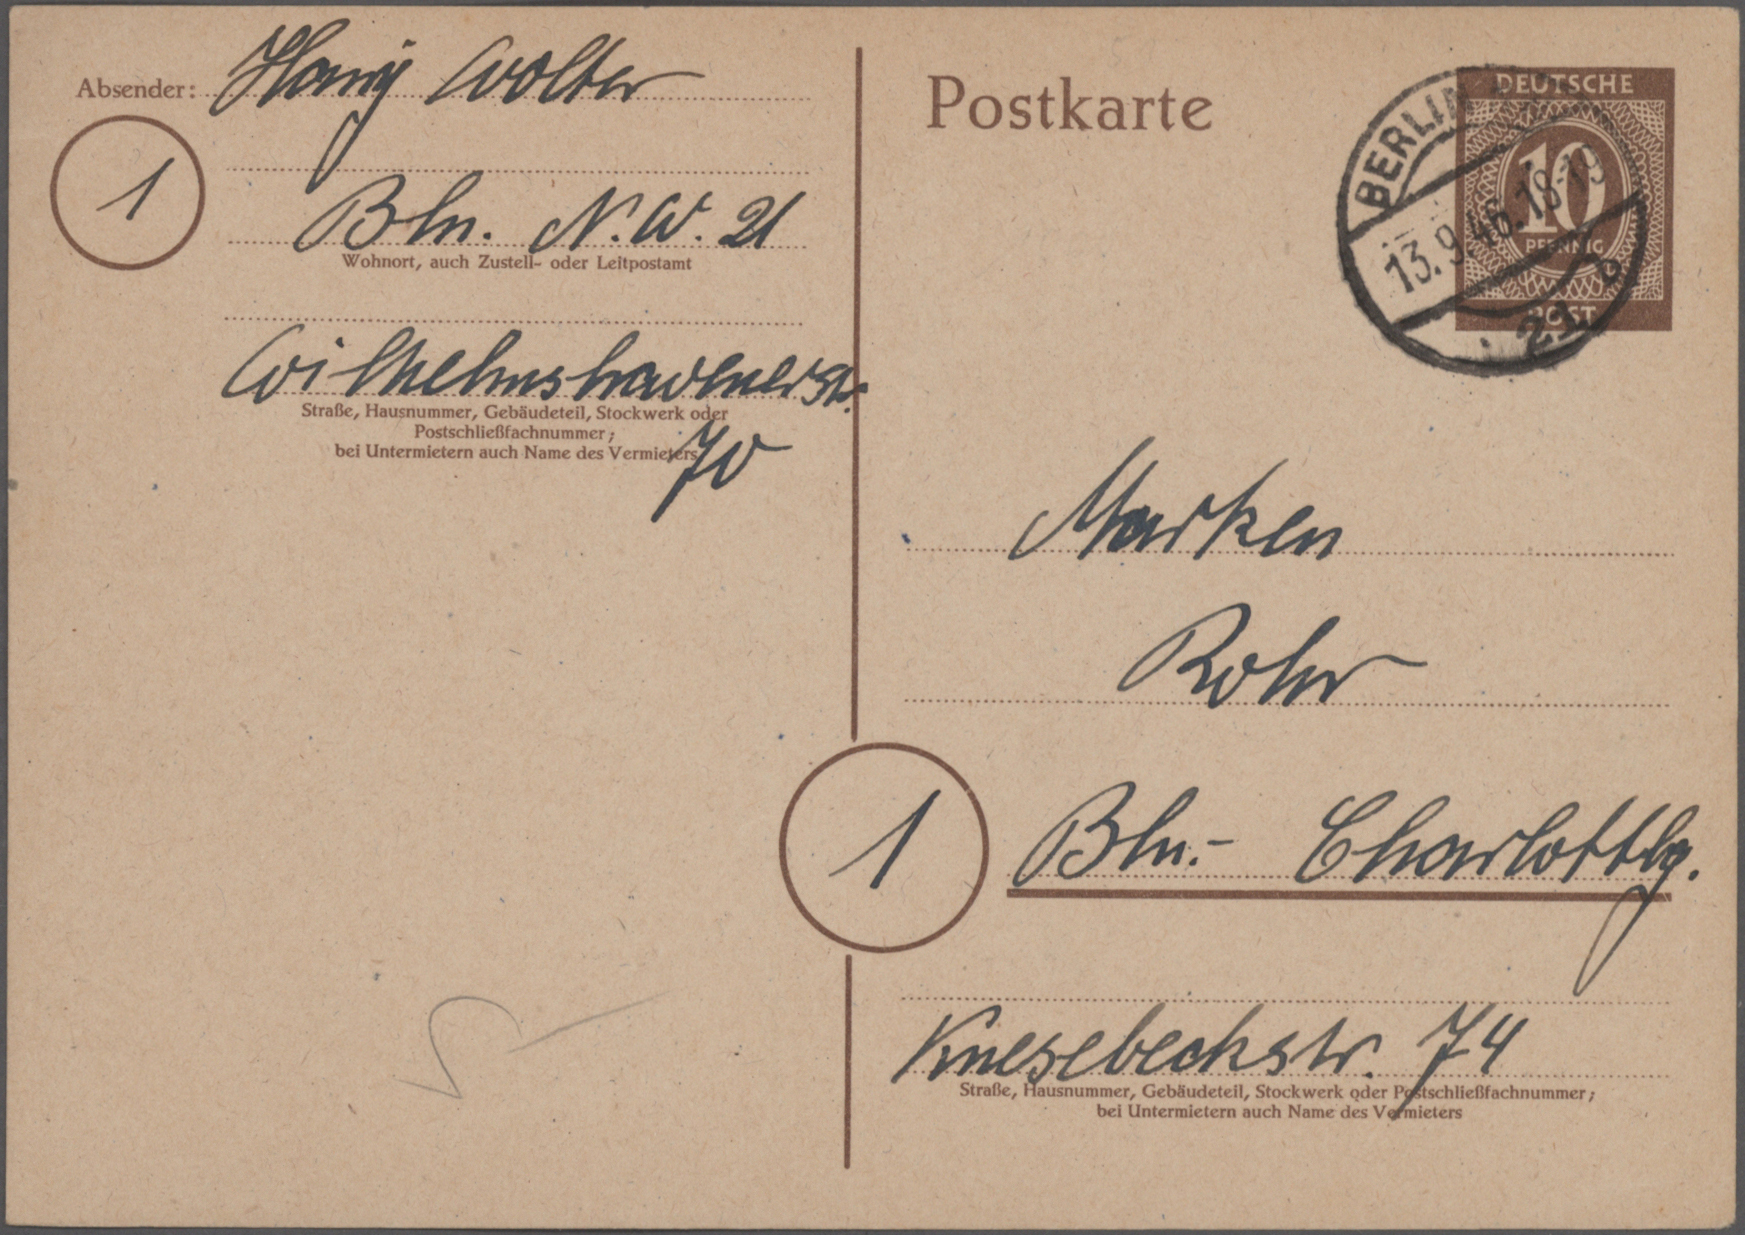 Absender: Harry Wolter
1
Bln. N.W. 21
Wohnort, auch Zustell- oder Leitpostamt
Wilhelmshavenerstr.
Straße, Hausnummer, Gebäudeteil, Stockwerk oder
Postschließfachnummer;
bei Untermietern auch Name des Vermieters
70
Postkarte
DEUTSCHE
10
PFENNIG
POST
BERLIN
13.9.46.18-19
21
Marken
Rohr
1
Bln.- Charlottbg.
Knesebeckstr. 74
Straße, Hausnummer, Gebäudeteil, Stockwerk oder Postschließfachnummer;
bei Untermietern auch Name des Vermieters